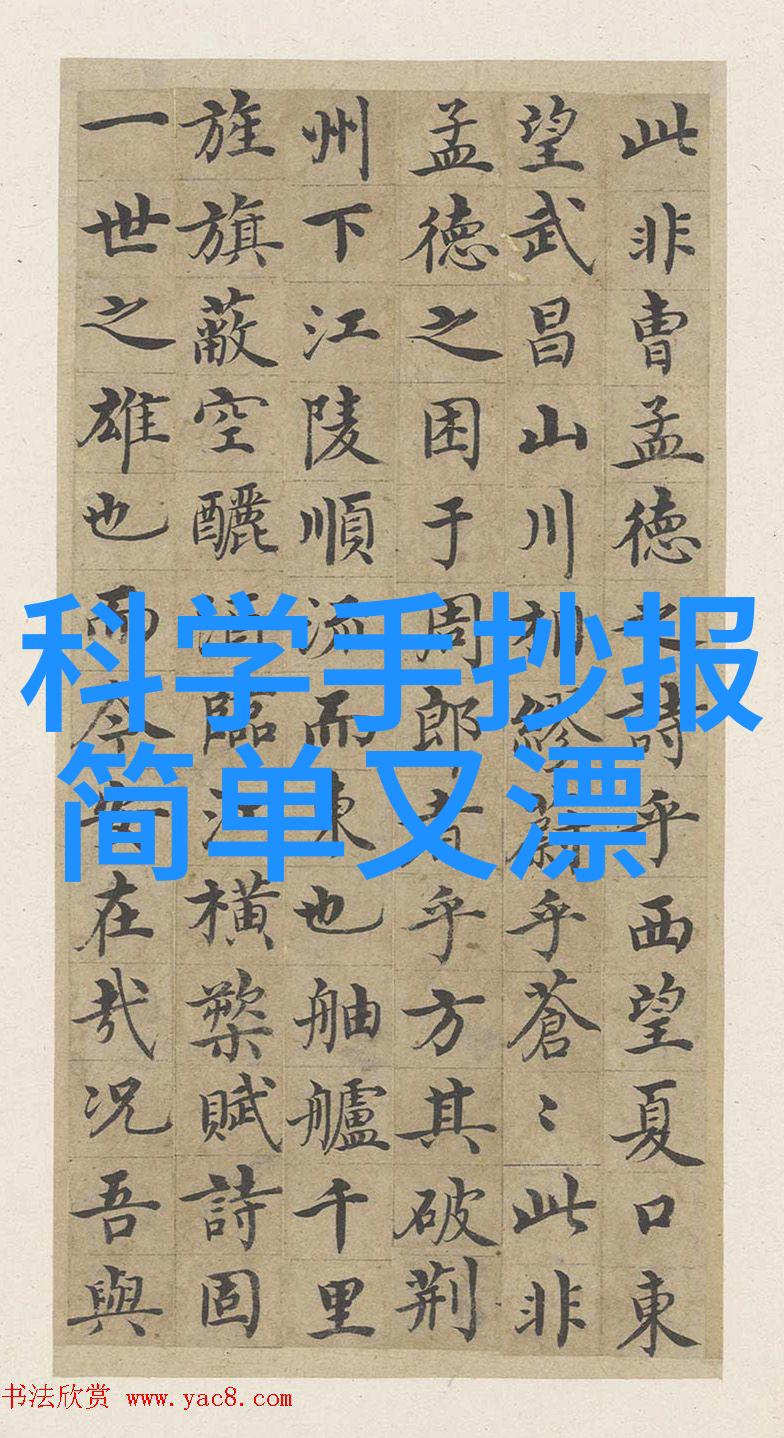 此非曹孟德之詩乎西望夏口東
望武昌山川相繆乎蒼〻此非
孟德之困于周郎者乎方其破荆
州下江陵順流而東也舳艫千里
旌旗蔽空釃酒臨江横槊賦詩固
一世之雄也而今安在哉况吾與
科学手抄报
简单又漂
书法欣赏 www.yac8.com